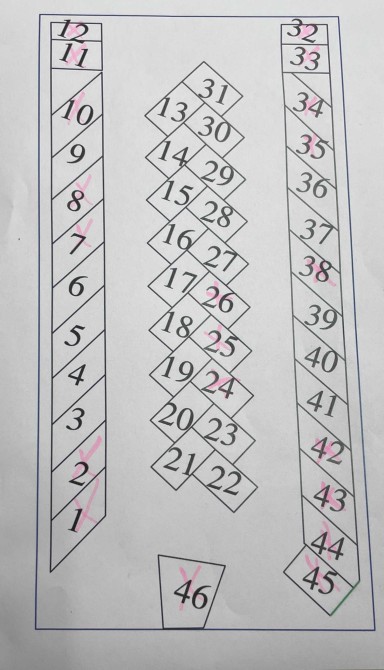 12
11
10
9
8
7
6
5
4
3
2
1
31
13 30
14 29
15 28
16 27
17 26
18 25
19 24
20 23
21 22
32
33
34
35
36
37
38
39
40
41
42
43
44
45
46